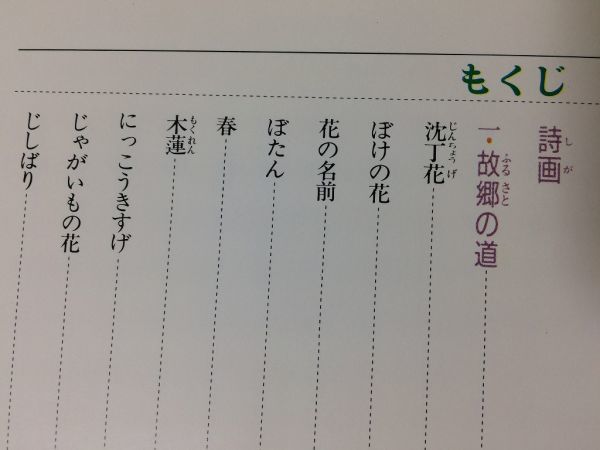 もくじ
詩画
しが
一・故郷の道
ふるさと
沈丁花
じんちょうげ
ぼけの花
花の名前
ぼたん
春
木蓮
もくれん
にっこうきすげ
じゃがいもの花
じしばり